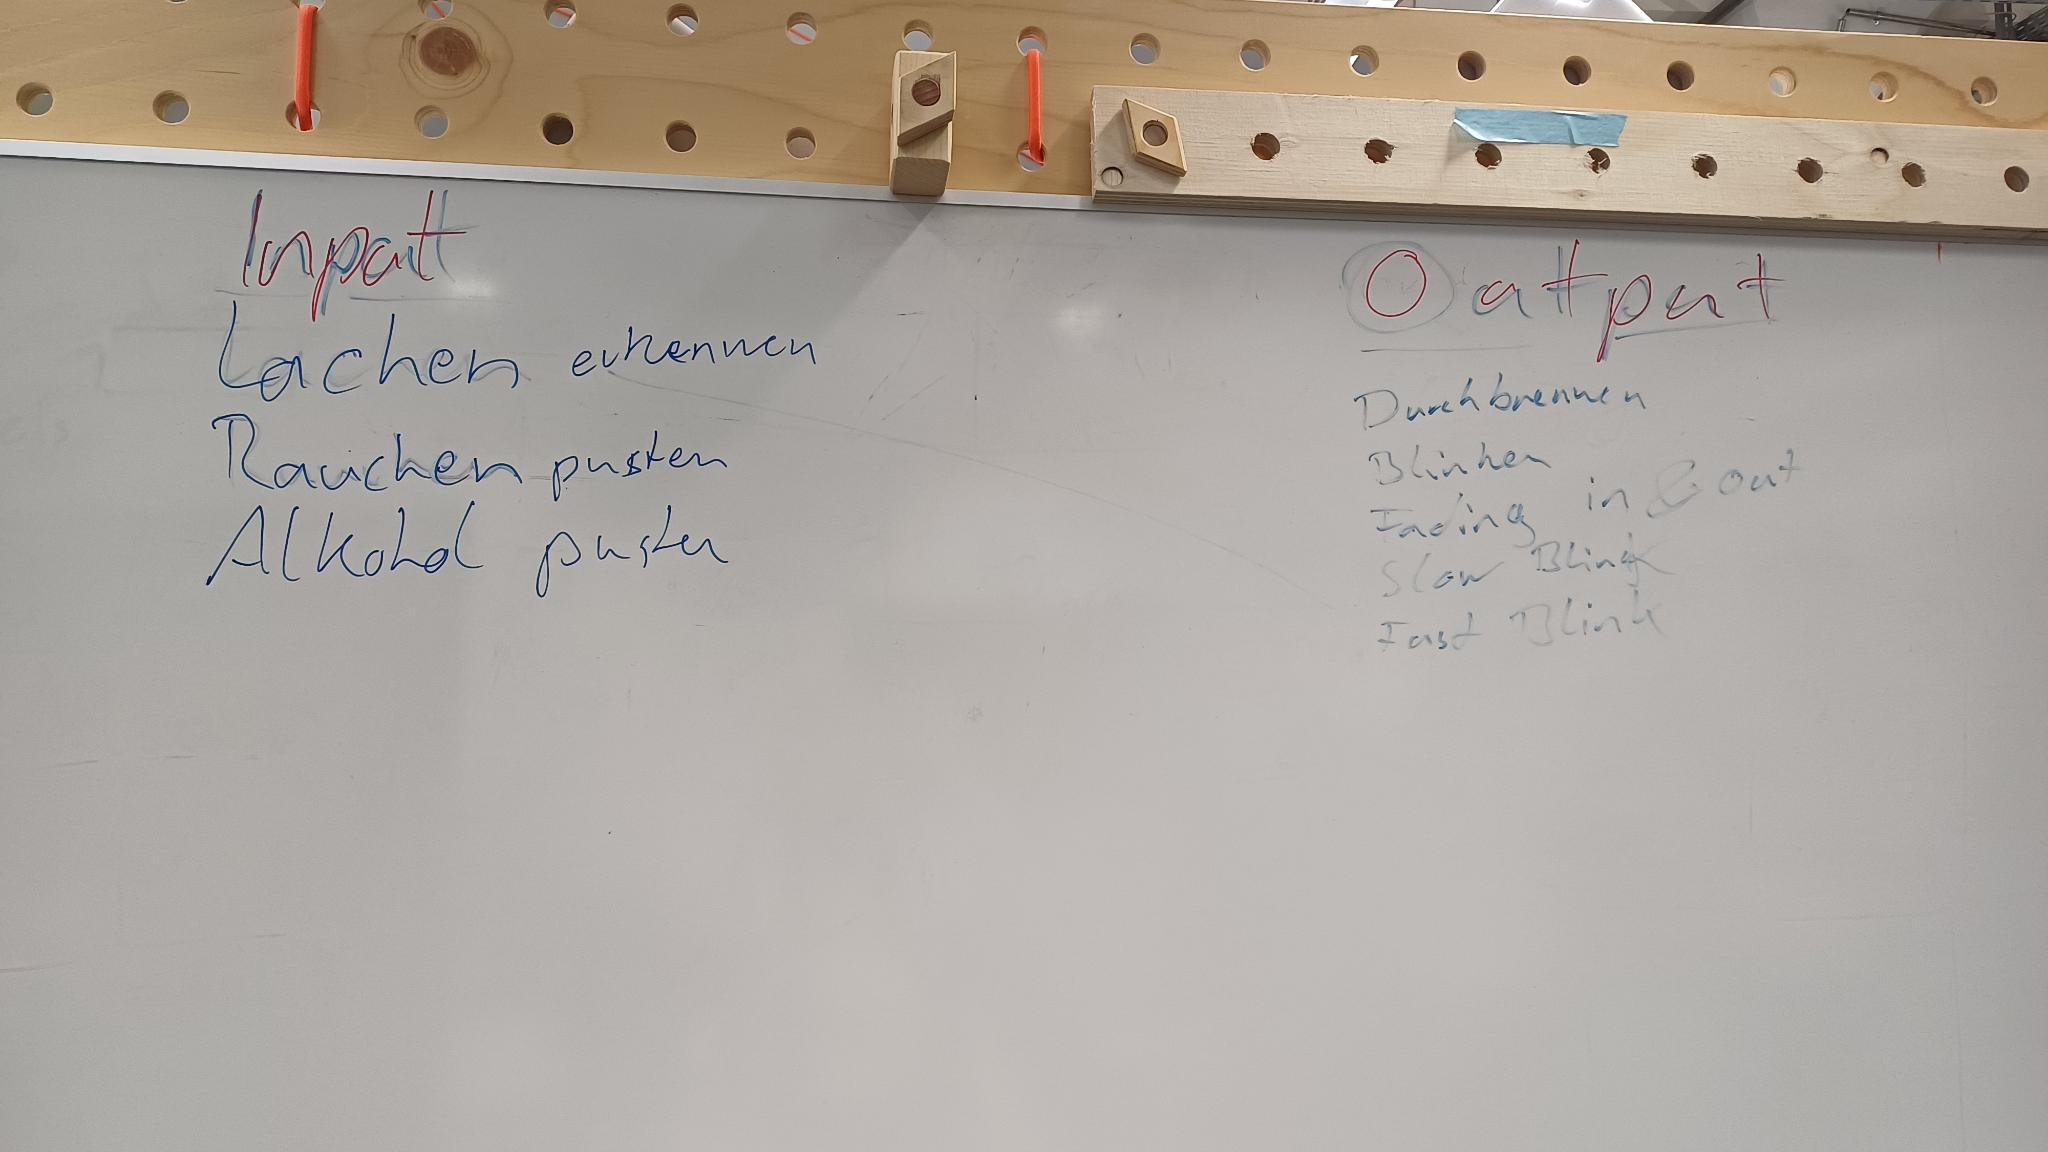 Input
Lachen erkennen
Rauchen pusten
Alkohol pusten
Output
Durchbrennen
Blinken
Fading in & out
Slow Blink
Fast Blink